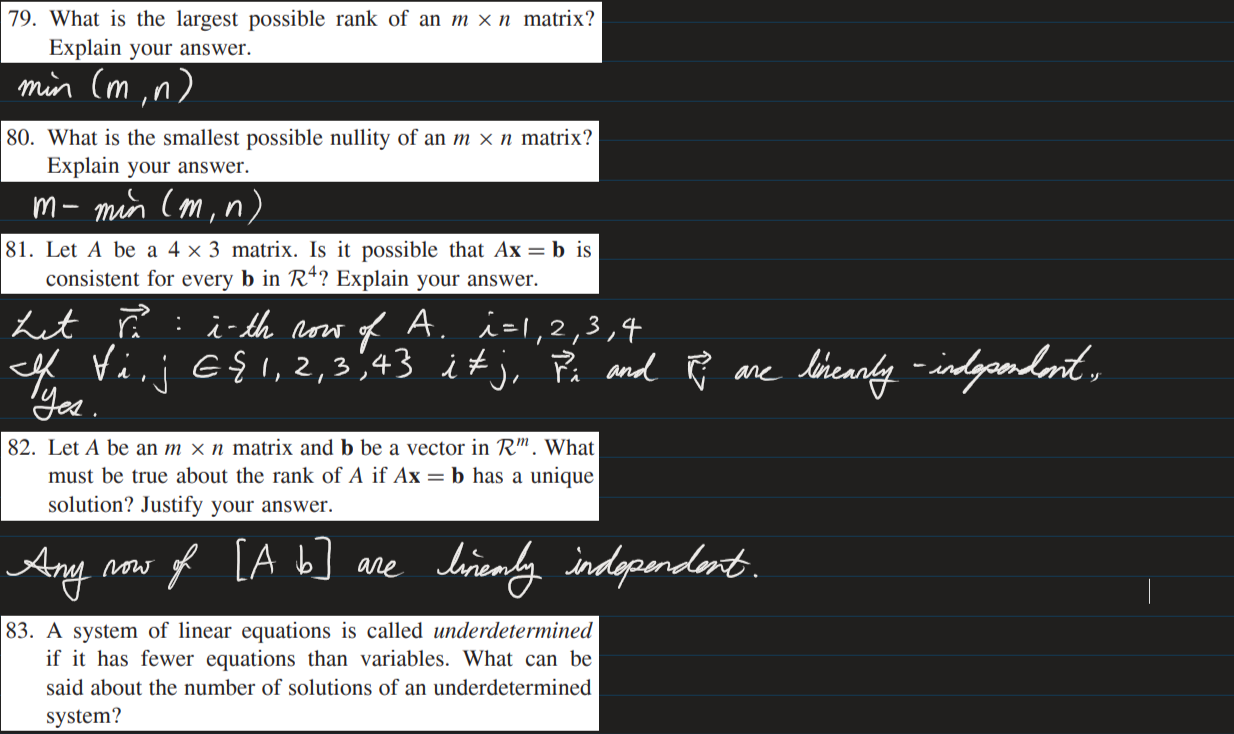 79. What is the largest possible rank of an m × n matrix?
Explain your answer.
min (m, n)
80. What is the smallest possible nullity of an m × n matrix?
Explain your answer.
m - min (m, n)
81. Let A be a 4 × 3 matrix. Is it possible that Ax = b is
consistent for every b in R⁴? Explain your answer.
Let r⃗ᵢ : i-th row of A. i=1,2,3,4
If ∀i,j ∈ {1,2,3,4} i≠j, r⃗ᵢ and r⃗ⱼ are linearly-independent,,
Yes.
82. Let A be an m × n matrix and b be a vector in Rᵐ. What
must be true about the rank of A if Ax = b has a unique
solution? Justify your answer.
Any row of [A b] are linearly independent.
83. A system of linear equations is called underdetermined
if it has fewer equations than variables. What can be
said about the number of solutions of an underdetermined
system?